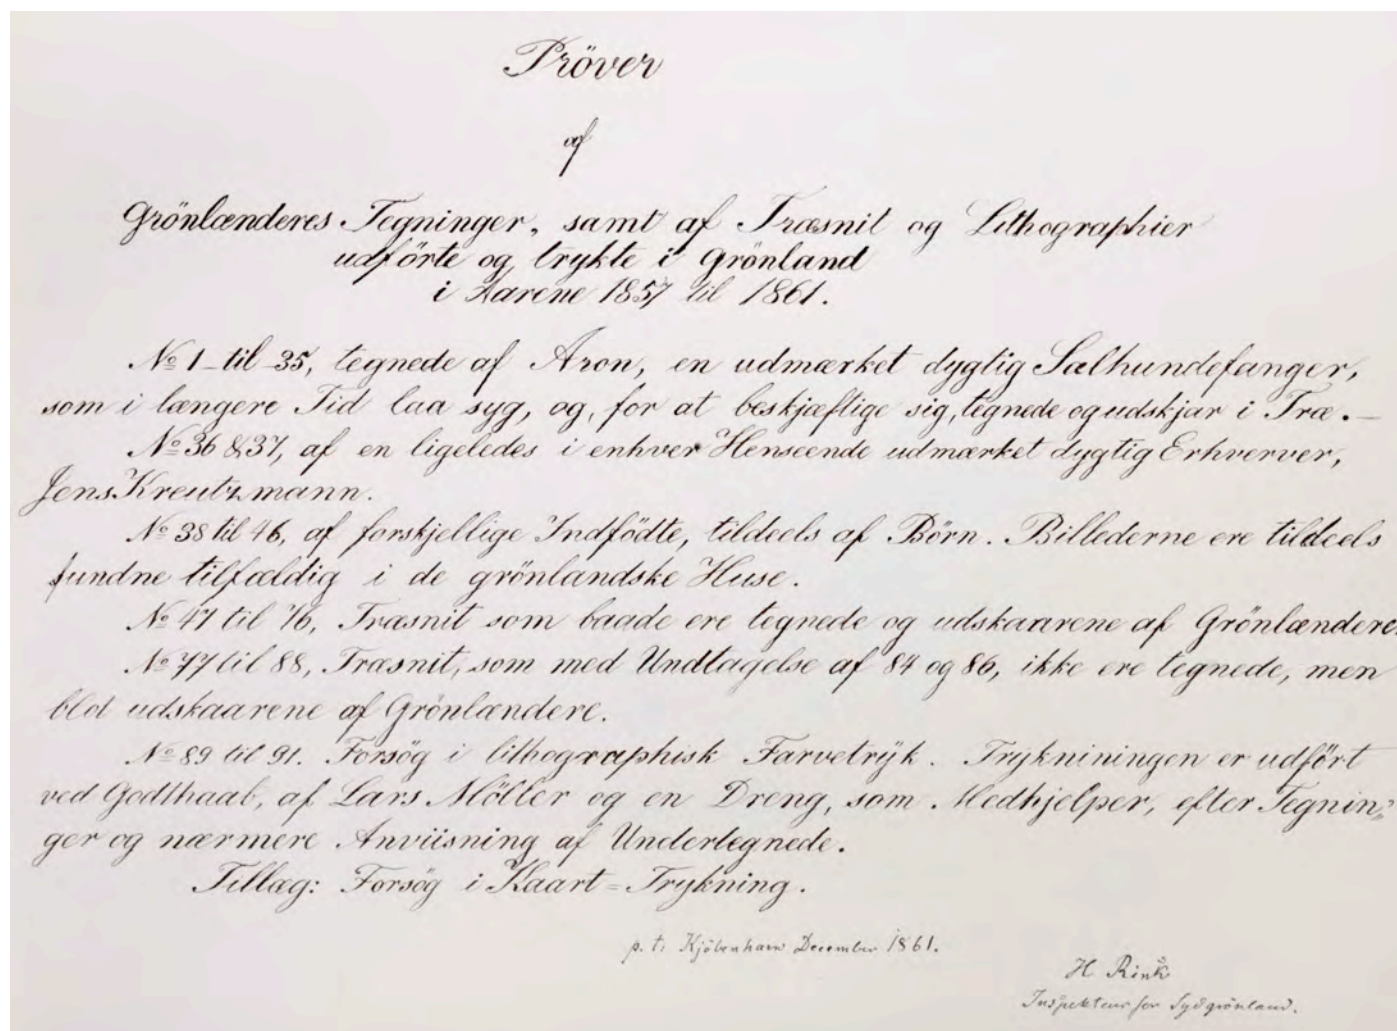 Pröver
af
Grönlænderes Tegninger, samt af Træsnit og Lithographier
udförte og trykte i Grönland
i Aarene 1857 til 1861.
No 1 til 35, tegnede af Aron, en udmærket dygtig Sælhundefanger,
som i længere Tid laa syg, og, for at beskjæftige sig, tegnede og udskjar i Træ.–
No 36 & 37, af en ligeledes i enhver Henseende udmærket dygtig Erhverver,
Jens Kreutzmann.
No 38 til 46, af forskjellige Indfödte, tildeels af Börn. Billederne ere tildeels
fundne tilfældig i de grönlandske Huse.
No 47 til 76, Træsnit som baade ere tegnede og udskaarene af Grönlændere.
No 77 til 88, Træsnit, som med Undtagelse af 84 og 86, ikke ere tegnede, men
blot udskaarene af Grönlændere.
No 89 til 91. Forsög i lithographisk Farvetryk. Trykniningen er udfört
ved Godthaab, af Lars Möller og en Dreng, som Medhjelper, efter Tegnin„
ger og nærmere Anviisning af Undertegnede.
Tillæg: Forsög i Kaart=Trykning.
p. t. Kjöbenhavn December 1861.
H Rink
Inspekteur for Sydgrönland.